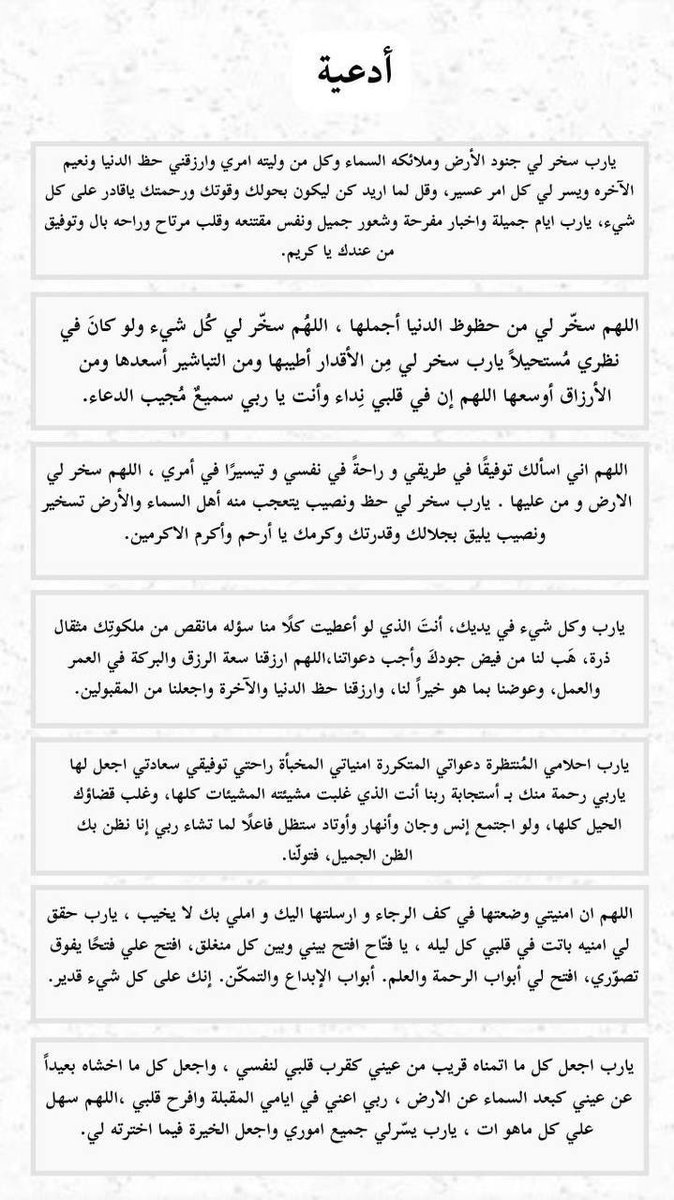 أدعية
يارب سخر لي جنود الأرض وملائكه السماء وكل من وليته امري وارزقني حظ الدنيا ونعيم
الآخره ويسر لي كل امر عسير، وقل لما اريد كن ليكون بحولك وقوتك ورحمتك ياقادر على كل
شيء، يارب ايام جميلة واخبار مفرحة وشعور جميل ونفس مقتنعه وقلب مرتاح وراحه بال وتوفيق
من عندك يا كريم.
اللهم سخّر لي من حظوظ الدنيا أجملها ، اللهُم سخّر لي كُل شيء ولو كانَ في
نظري مُستحيلاً يارب سخر لي مِن الأقدار أطيبها ومن التباشير أسعدها ومن
الأرزاق أوسعها اللهم إن في قلبي نِداء وأنت يا ربي سميعٌ مُجيب الدعاء.
اللهم اني اسألك توفيقًا في طريقي و راحةً في نفسي و تيسيرًا في أمري ، اللهم سخر لي
الارض و من عليها . يارب سخر لي حظ ونصيب يتعجب منه أهل السماء والأرض تسخير
ونصيب يليق بجلالك وقدرتك وكرمك يا أرحم وأكرم الاكرمين.
يارب وكل شيء في يديك، أنتَ الذي لو أعطيت كلًا منا سؤله مانقص من ملكوتِك مثقال
ذرة، هَب لنا من فيض جودكَ وأجب دعواتنا،اللهم ارزقنا سعة الرزق والبركة في العمر
والعمل، وعوضنا بما هو خيراً لنا، وارزقنا حظ الدنيا والآخرة واجعلنا من المقبولين.
يارب احلامي المُنتظرة دعواتي المتكررة امنياتي المخبأة راحتي توفيقي سعادتي اجعل لها
ياربي رحمة منك بـ أستجابة ربنا أنت الذي غلبت مشيئته المشيئات كلها، وغلب قضاؤك
الحيل كلها، ولو اجتمع إنس وجان وأنهار وأوتاد ستظل فاعلًا لما تشاء ربي إنا نظن بك
الظن الجميل، فتولّنا.
اللهم ان امنيتي وضعتها في كف الرجاء و ارسلتها اليك و املي بك لا يخيب ، يارب حقق
لي امنيه باتت في قلبي كل ليله ، يا فتّاح افتح بيني وبين كل منغلق، افتح علي فتحًا يفوق
تصوّري، افتح لي أبواب الرحمة والعلم. أبواب الإبداع والتمكّن. إنك على كل شيء قدير.
يارب اجعل كل ما اتمناه قريب من عيني كقرب قلبي لنفسي ، واجعل كل ما اخشاه بعيداً
عن عيني كبعد السماء عن الارض ، ربي اعني في ايامي المقبلة وافرح قلبي ،اللهم سهل
علي كل ماهو ات ، يارب يسّرلي جميع اموري واجعل الخيرة فيما اخترته لي.